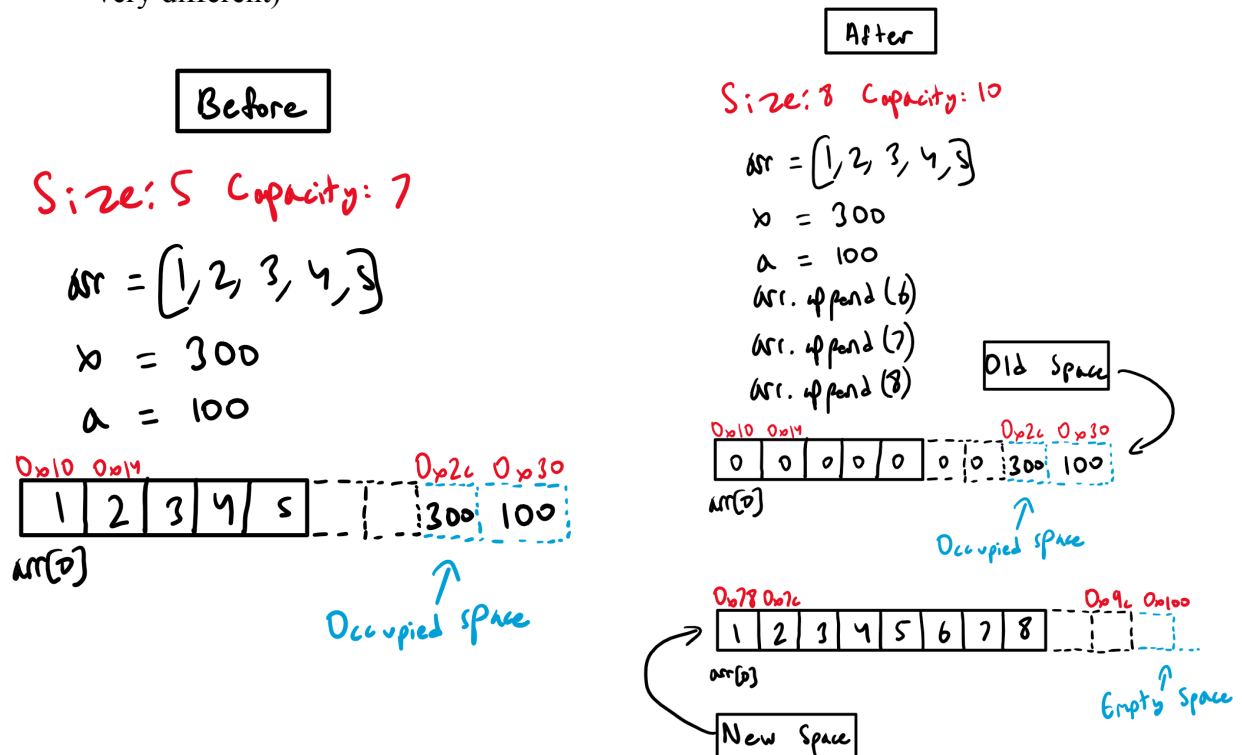 very different)
Before
Size: 5 Capacity: 7
arr = [1, 2, 3, 4, 5]
x = 300
a = 100
0x10 0x14 0x2c 0x30
1 2 3 4 5 300 100
arr[0]
Occupied space
After
Size: 8 Capacity: 10
arr = [1, 2, 3, 4, 5]
x = 300
a = 100
arr.append(6)
arr.append(7)
arr.append(8)
Old Space
0x10 0x14 0x2c 0x30
0 0 0 0 0 0 0 300 100
arr[0]
Occupied space
0x78 0x7c 0x9c 0x100
1 2 3 4 5 6 7 8
arr[0]
Empty Space
New Space